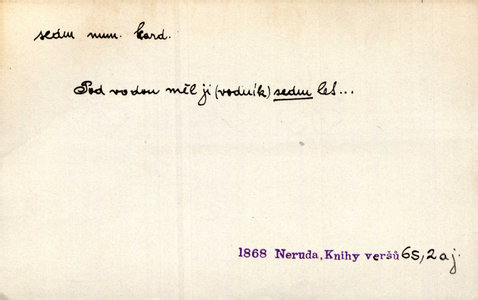 sedm num. kard.
Pod vodou měl ji (vodník) sedm let...
1868 Neruda, Knihy veršů 65,2 aj.